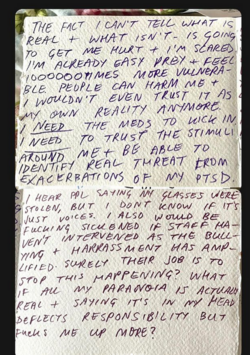 THE FACT I CAN'T TELL WHAT IS
REAL + WHAT ISN'T - IS GOING
TO GET ME HURT + I'M SCARED
I'M ALREADY EASY PREY + FEEL
1000000 TIMES MORE VULNERA-
BLE PEOPLE CAN HARM ME -
I WOULDN'T EVEN TRUST IT AS
MY OWN REALITY ANYMORE.
I NEED THE MEDS TO KICK IN
I NEED TO TRUST THE STIMULI
AROUND ME + BE ABLE TO
IDENTIFY REAL THREAT FROM
EXACERBATIONS OF MY PTSD.
I HEAR PPL SAYING MY GLASSES WERE
STOLEN, BUT I DON'T KNOW IF IT'S
JUST VOICES. I ALSO WOULD BE
FUCKING SICKENED IF STAFF HA-
VENT INTERVENED AS THE BULL-
YING + HARRASSMENT HAS AMP-
LIFIED. SURELY THEIR JOB IS TO
STOP THIS HAPPENING? WHAT
IF ALL MY PARANOIA IS ACTUALLY
REAL + SAYING IT'S IN MY HEAD
DEFLECTS RESPONSIBILITY BUT
FUCKS ME UP MORE?